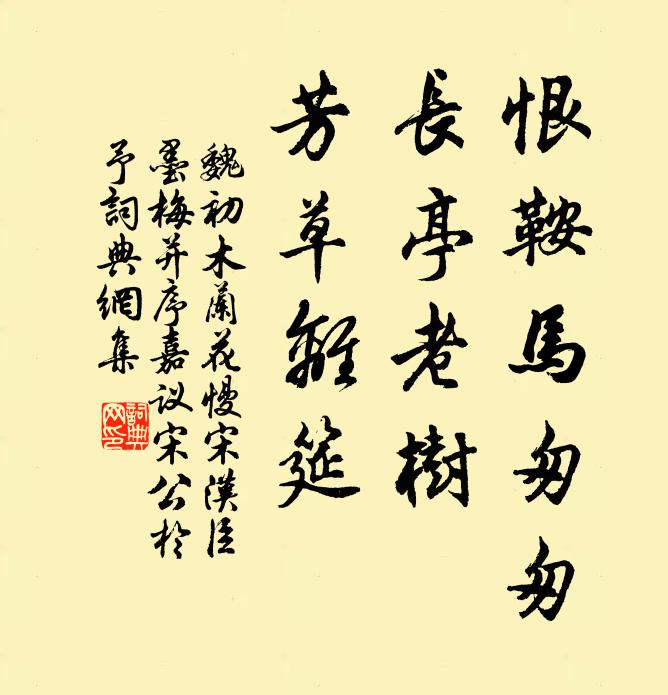 恨鞍馬匆匆
長亭老樹
芳草離筵
魏初木蘭花慢宋漢臣
墨梅并序嘉议宋公於
予詞典網集
詞典网印